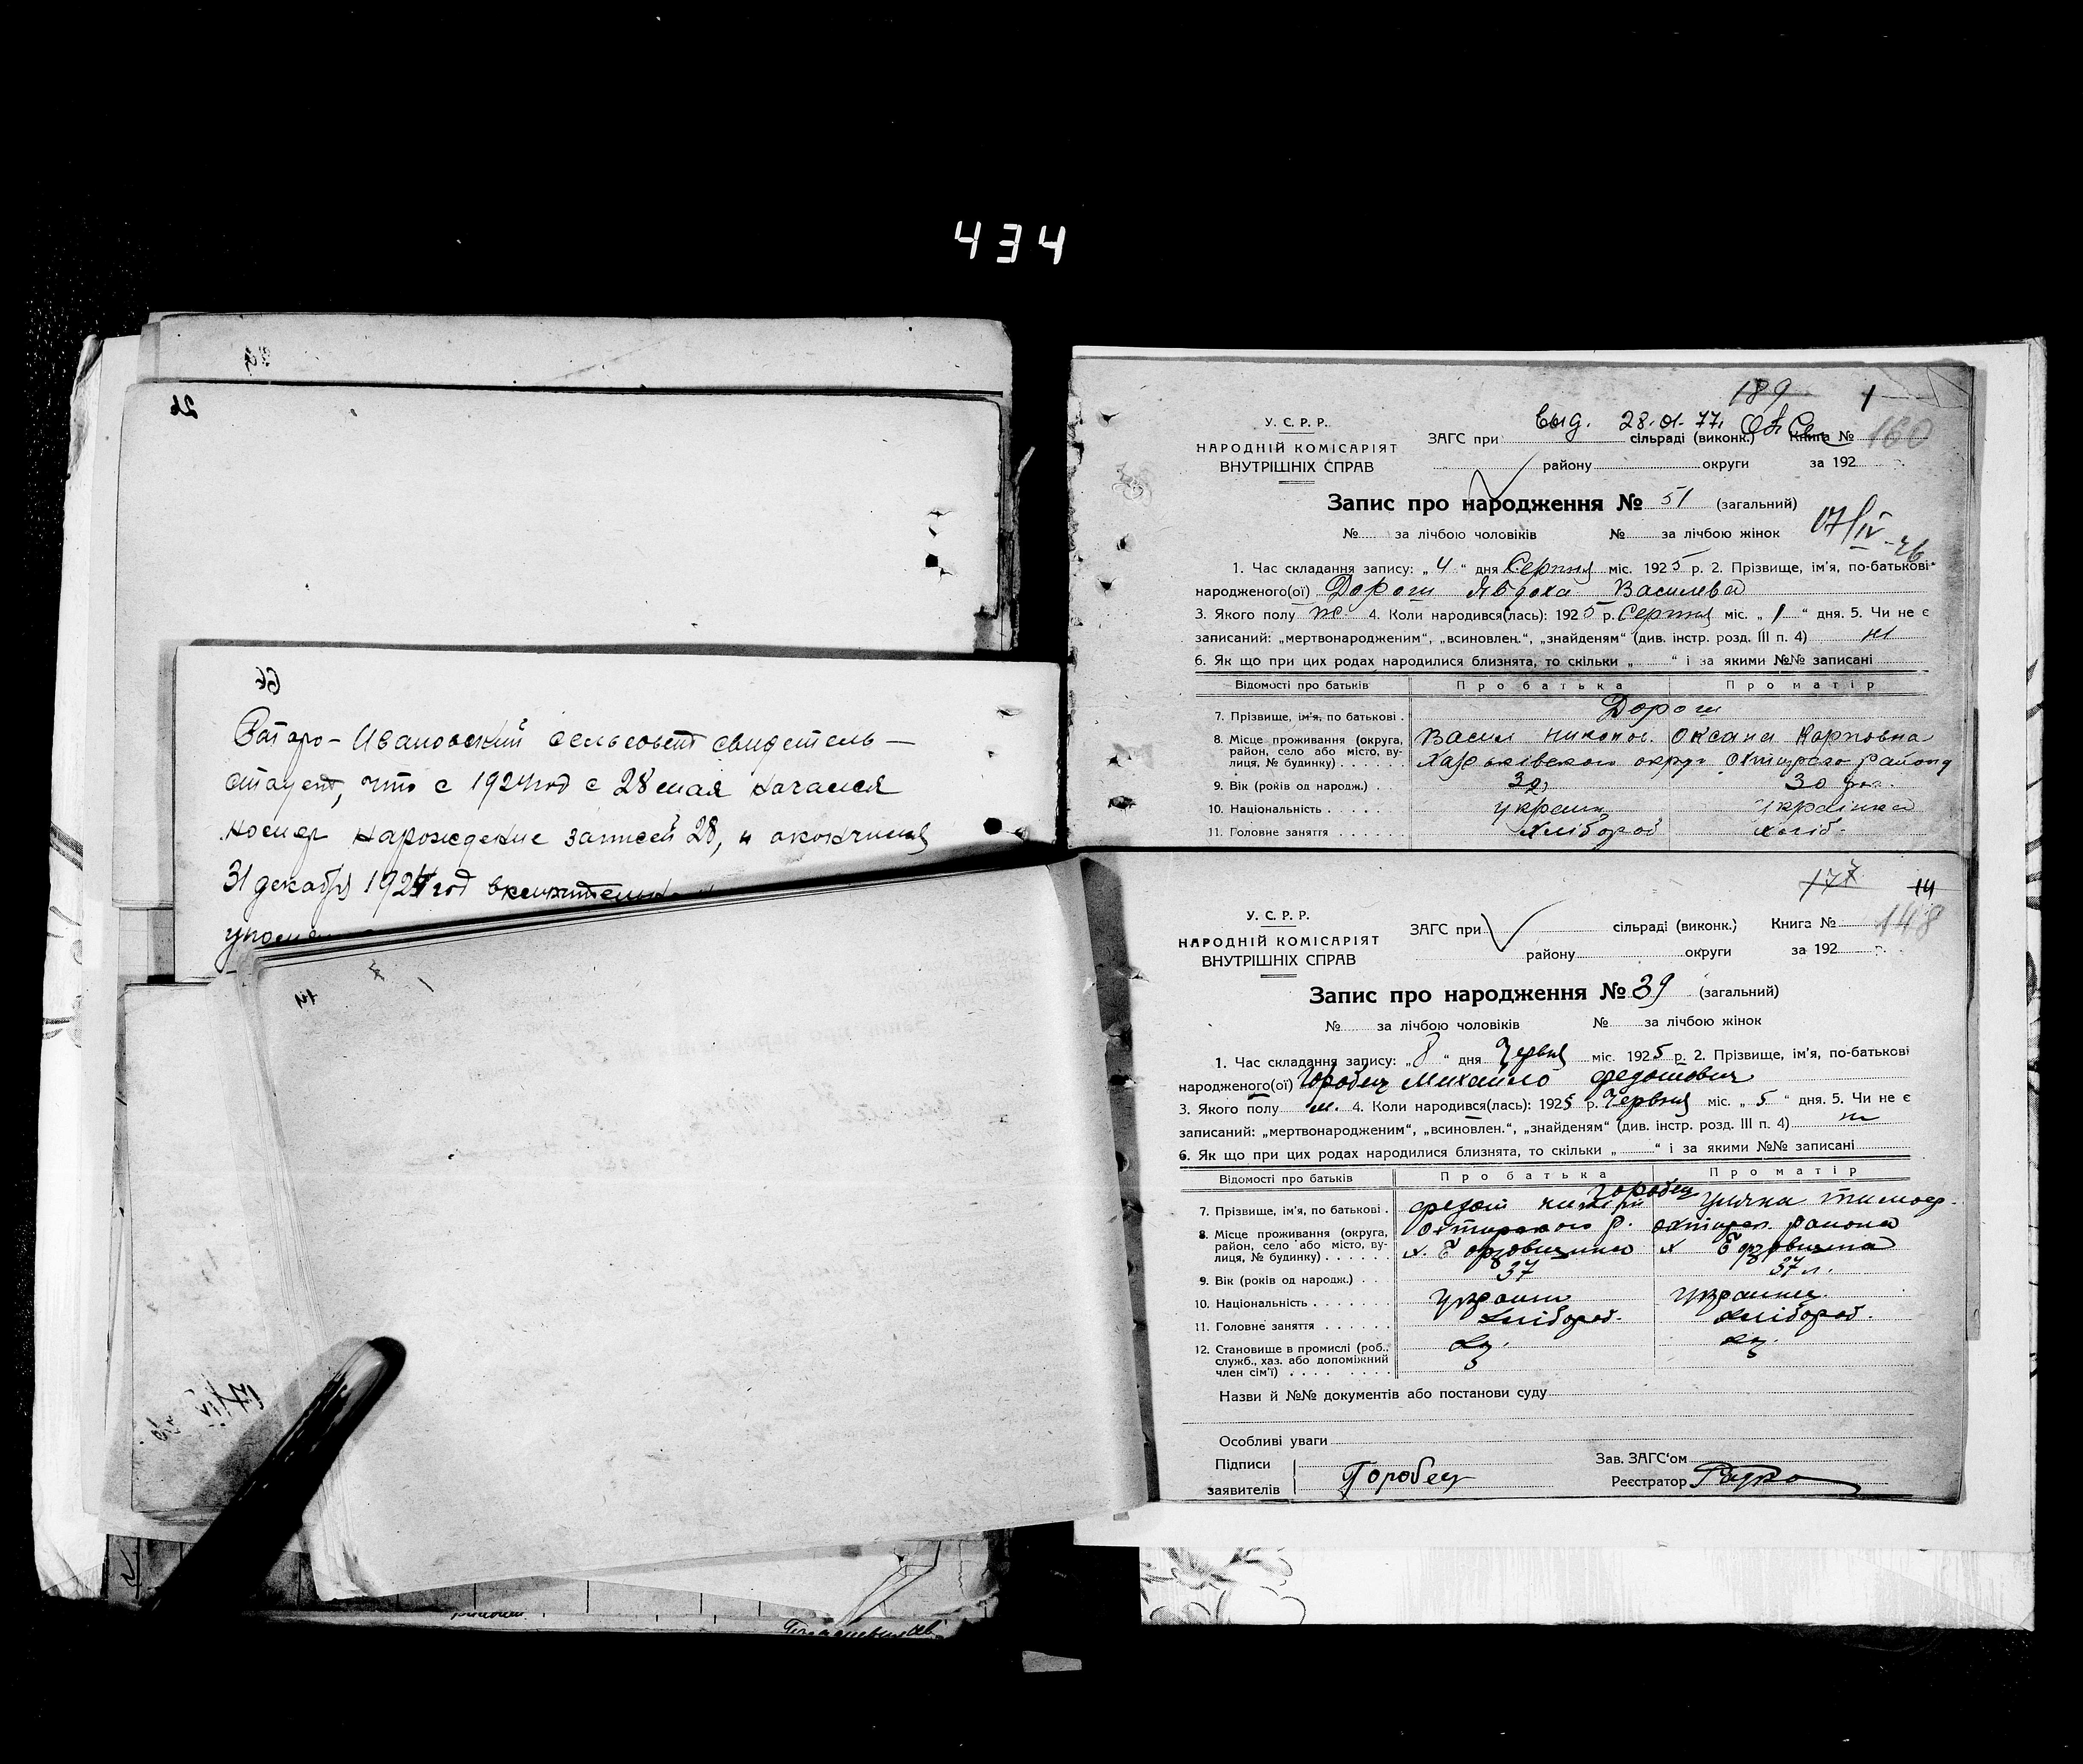 434
26
66
Ивановский сельсовет свидетель-
что с 1924 год с 28 мая начался
номер нарождение записей 28, и
31 декабря 1924 год
189 1
выд. 28.01.77.
160
У. С. Р. Р.
НАРОДНІЙ КОМІСАРІЯТ
ВНУТРІШНІХ СПРАВ
ЗАГС при сільраді (виконк.) Книга №
району округи за 192 р.
Запис про народження № 51 (загальний)
№ за лічбою чоловіків № за лічбою жінок
17/IV-76
1. Час складання запису: „4“ дня Серпня міс. 1925 р. 2. Прізвище, ім'я, по-батькові
народженого(ої) Дорош Явдоха Василева
3. Якого полу ж. 4. Коли народився(лась): 1925 р. Серпня міс. „1“ дня. 5. Чи не є
записаний: „мертвонародженим“, „всиновлен.“, „знайденям“ (див. інстр. розд. III п. 4) ні
6. Як що при цих родах народилися близнята, то скільки „ “ і за якими №№ записані
Відомості про батьків Про батька Про матір
Дорош
7. Прізвище, ім'я, по батькові .
8. Місце проживання (округа, район, село або місто, вулиця, № будинку) . . . . . Васил Оксана Карповна
Харьківского округ району
9. Вік (років од народж.) . . 30
10. Національність . . . . . українка
11. Головне заняття . . . . . . Хлібороб хліб.
177 14
148
У. С. Р. Р.
НАРОДНІЙ КОМІСАРІЯТ
ВНУТРІШНІХ СПРАВ
ЗАГС при сільраді (виконк.) Книга №
району округи за 192 р.
Запис про народження № 39 (загальний)
№ за лічбою чоловіків № за лічбою жінок
1. Час складання запису: „8“ дня Червня міс. 1925 р. 2. Прізвище, ім'я, по-батькові
народженого(ої) Горобец Михайло Федотович
3. Якого полу м. 4. Коли народився(лась): 1925 р. Червня міс. „5“ дня. 5. Чи не є
записаний: „мертвонародженим“, „всиновлен.“, „знайденям“ (див. інстр. розд. III п. 4)
6. Як що при цих родах народилися близнята, то скільки „ “ і за якими №№ записані
Відомості про батьків Про батька Про матір
Горобец
7. Прізвище, ім'я, по батькові . Федот
8. Місце проживання (округа, район, село або місто, вулиця, № будинку) . . . . . Охтирского р. района
9. Вік (років од народж.) . . . 37 37 л.
10. Національність . . . . . . .
11. Головне заняття . . . . . . Хлібороб. Хлібороб.
12. Становище в промислі (роб., служб., хаз. або допоміжний член сім'ї) . . . .
Назви й №№ документів або постанови суду
Особливі уваги
Підписи
заявителів
Горобец
Зав. ЗАГС'ом
Реєстратор